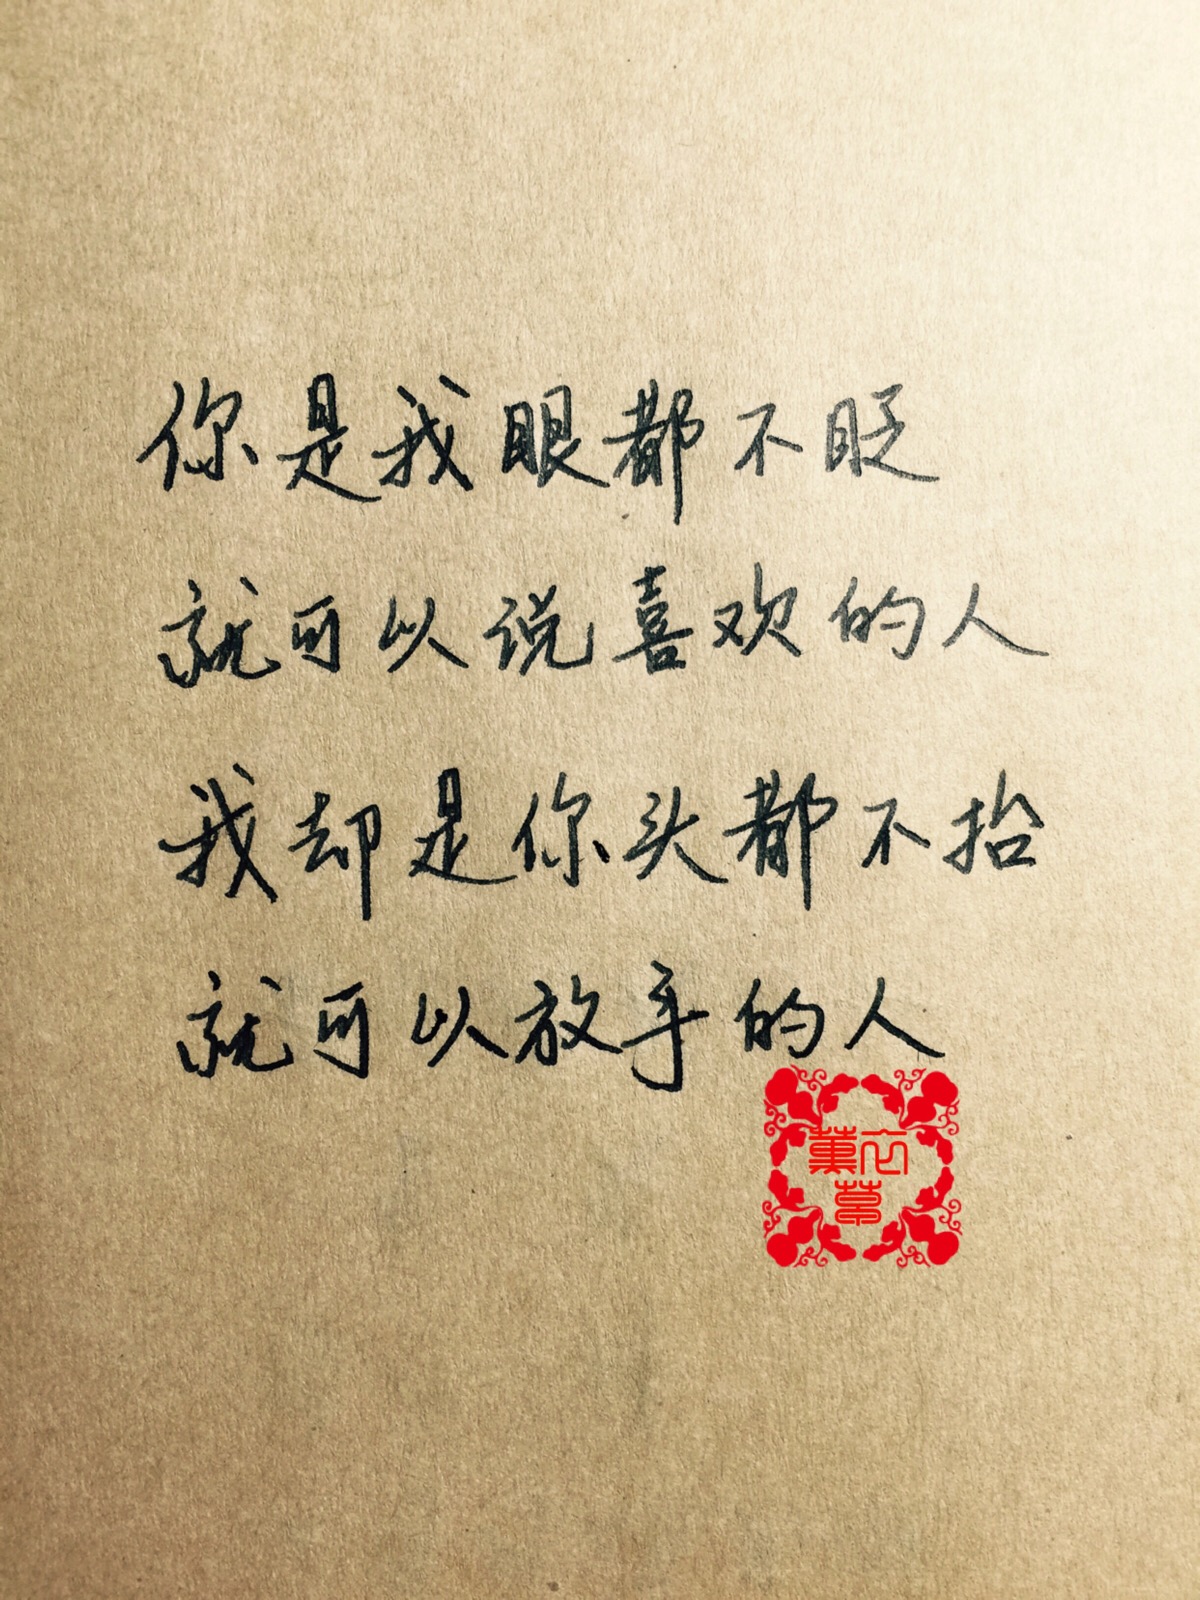 你是我眼都不眨
就可以说喜欢的人
我却是你头都不抬
就可以放手的人